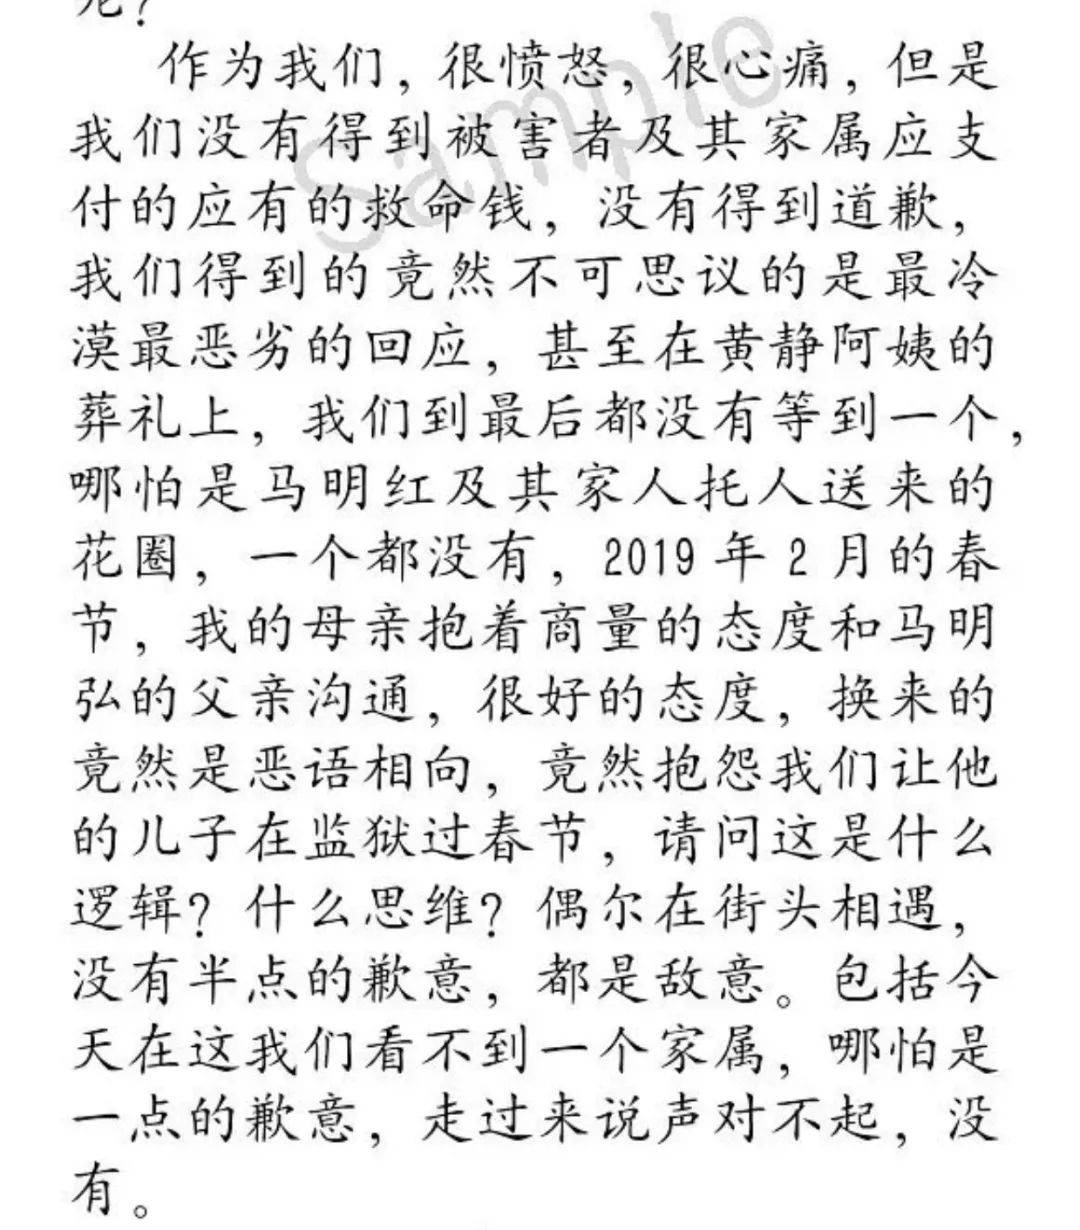 作为我们，很愤怒，很心痛，但是
我们没有得到被害者及其家属应支
付的应有的救命钱，没有得到道歉，
我们得到的竟然不可思议的是最冷
漠最恶劣的回应，甚至在黄静阿姨的
葬礼上，我们到最后都没有等到一个，
哪怕是马明红及其家人托人送来的
花圈，一个都没有，2019 年 2 月的春
节，我的母亲抱着商量的态度和马明
弘的父亲沟通，很好的态度，换来的
竟然是恶语相向，竟然抱怨我们让他
的儿子在监狱过春节，请问这是什么
逻辑？什么思维？偶尔在街头相遇，
没有半点的歉意，都是敌意。包括今
天在这我们看不到一个家属，哪怕是
一点的歉意，走过来说声对不起，没
有。
Sample